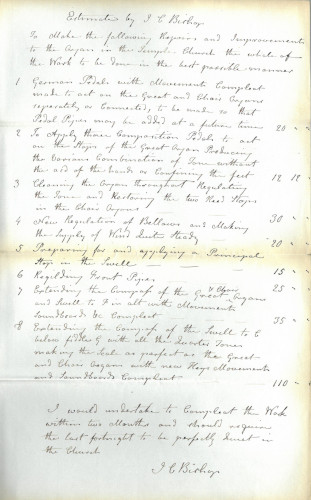 Estimate by J C Bishop
To Make the following Repairs and Improvements
to the Organ in the Temple Church the whole of
the Work to be done in the best possible manner
1 German Pedals with Movements Compleat
made to act on the Great and Choir Organs
separately or Connected, to be made so that
Pedal Pipes may be added at a future time 20 "
2 To Apply three Composition Pedals to act
on the Stops of the Great Organ Producing
the Various Combination of Tone without
the aid of the hands or Confining the feet 12 12
3 Cleaning the Organ throughout Regulating
the Tone and Restoring the two Reed Stops
in the Choir Organ 30 "
4 New Regulation of Bellows and Making
the supply of Wind Quite Steady 20 "
5 Preparing for and applying a Principal
Stop in the Swell 15 "
6 Regilding Front Pipes 25 "
7 Extending the Compass of the Great & Choir Organs
and Swell to F in alt with Movements
Soundboards &c Compleat 35 "
8 Extending the Compass of the Swell to C
below fiddle G with all the Quarter Tones
making the Scale as perfect as the Great
and Choir Organs with new Stops Movements
and Soundboards Compleat 110 "
I would undertake to Compleat the Work
within two Months and should require
the last fortnight to be perfectly quiet in
the Church
J C Bishop